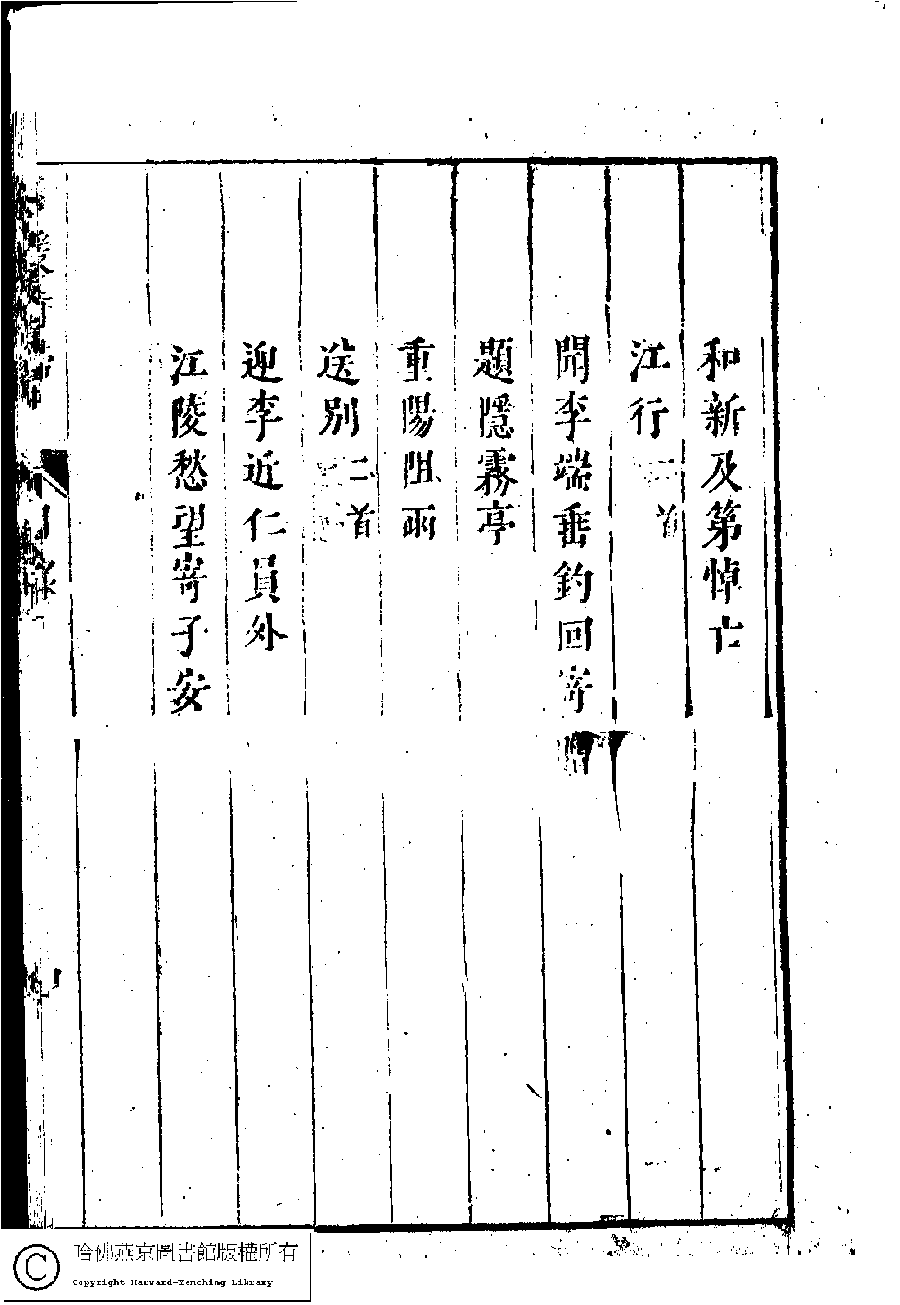 和新及第悼亡
江行二首
聞李端垂釣回寄贈
題隱霧亭
重陽阻雨
送別二首
迎李近仁員外
江陵愁望寄子安
目錄
哈佛燕京圖書館版權所有
Copyright Harvard-Yenching Library